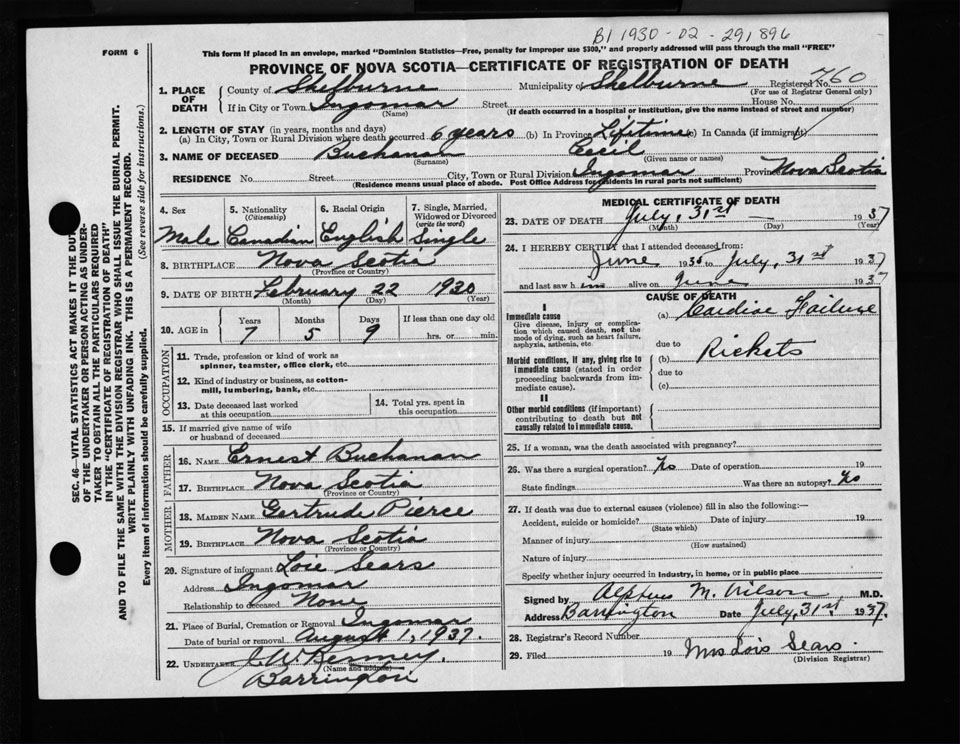 B1 1930-02-291896
FORM 6
This form if placed in an envelope, marked "Dominion Statistics—Free, penalty for improper use $300," and properly addressed will pass through the mail "FREE"
PROVINCE OF NOVA SCOTIA—CERTIFICATE OF REGISTRATION OF DEATH
1. PLACE OF DEATH
County of Shelburne Municipality of Shelburne Registered No. 760
(For use of Registrar General only)
If in City or Town Ingomar Street House No.
(Name) (If death occurred in a hospital or institution, give the name instead of street and number)
2. LENGTH OF STAY (in years, months and days)
(a) In City, Town or Rural Division where death occurred 6 years (b) In Province Lifetime (c) In Canada (if immigrant)
3. NAME OF DECEASED Buchanan Cecil
(Surname) (Given name or names)
RESIDENCE No. Street City, Town or Rural Division Ingomar Province Nova Scotia
(Residence means usual place of abode. Post Office Address for residents in rural parts not sufficient)
SEC. 46—VITAL STATISTICS ACT MAKES IT THE DUTY
OF THE UNDERTAKER OR PERSON ACTING AS UNDER-
TAKER TO OBTAIN ALL THE PARTICULARS REQUIRED
IN THE "CERTIFICATE OF REGISTRATION OF DEATH"
AND TO FILE THE SAME WITH THE DIVISION REGISTRAR WHO SHALL ISSUE THE BURIAL PERMIT.
WRITE PLAINLY WITH UNFADING INK. THIS IS A PERMANENT RECORD.
Every item of information should be carefully supplied. (See reverse side for instructions.)
4. Sex 5. Nationality (Citizenship) 6. Racial Origin 7. Single, Married, Widowed or Divorced (write the word)
Male Canadian English Single
8. BIRTHPLACE Nova Scotia
(Province or Country)
9. DATE OF BIRTH February 22 1930
(Month) (Day) (Year)
10. AGE in Years Months Days If less than one day old
7 5 9 hrs. or min.
OCCUPATION
11. Trade, profession or kind of work as spinner, teamster, office clerk, etc.
12. Kind of industry or business, as cotton-mill, lumbering, bank, etc.
13. Date deceased last worked at this occupation
14. Total yrs. spent in this occupation
15. If married give name of wife or husband of deceased
FATHER
16. NAME Ernest Buchanan
17. BIRTHPLACE Nova Scotia
(Province or Country)
MOTHER
18. MAIDEN NAME Gertrude Pierce
19. BIRTHPLACE Nova Scotia
(Province or Country)
20. Signature of informant Lois Sears
Address Ingomar
Relationship to deceased None
21. Place of Burial, Cremation or Removal Ingomar
Date of burial or removal August 1, 1937.
22. UNDERTAKER
(Name and address)
Barrington
MEDICAL CERTIFICATE OF DEATH
23. DATE OF DEATH July, 31st 1937
(Month) (Day) (Year)
24. I HEREBY CERTIFY that I attended deceased from:
June 1936 to July, 31st 1937
and last saw him alive on June 1937
CAUSE OF DEATH
I
Immediate cause
Give disease, injury or complication which caused death, not the mode of dying, such as heart failure, asphyxia, asthenia, etc.
(a) Cardiac Failure
due to
Morbid conditions, if any, giving rise to immediate cause (stated in order proceeding backwards from immediate cause).
(b) Rickets
due to
(c)
II
Other morbid conditions (if important) contributing to death but not causally related to immediate cause.
25. If a woman, was the death associated with pregnancy?
26. Was there a surgical operation? No Date of operation 19
State findings Was there an autopsy? No
27. If death was due to external causes (violence) fill in also the following:—
Accident, suicide or homicide? Date of injury 19
(State which)
Manner of injury
(How sustained)
Nature of injury
Specify whether injury occurred in industry, in home, or in public place
Signed by Alpheus M. Wilson M.D.
Address Barrington Date July, 31st 1937.
28. Registrar's Record Number
29. Filed 19 Mrs Lois Sears.
(Division Registrar)